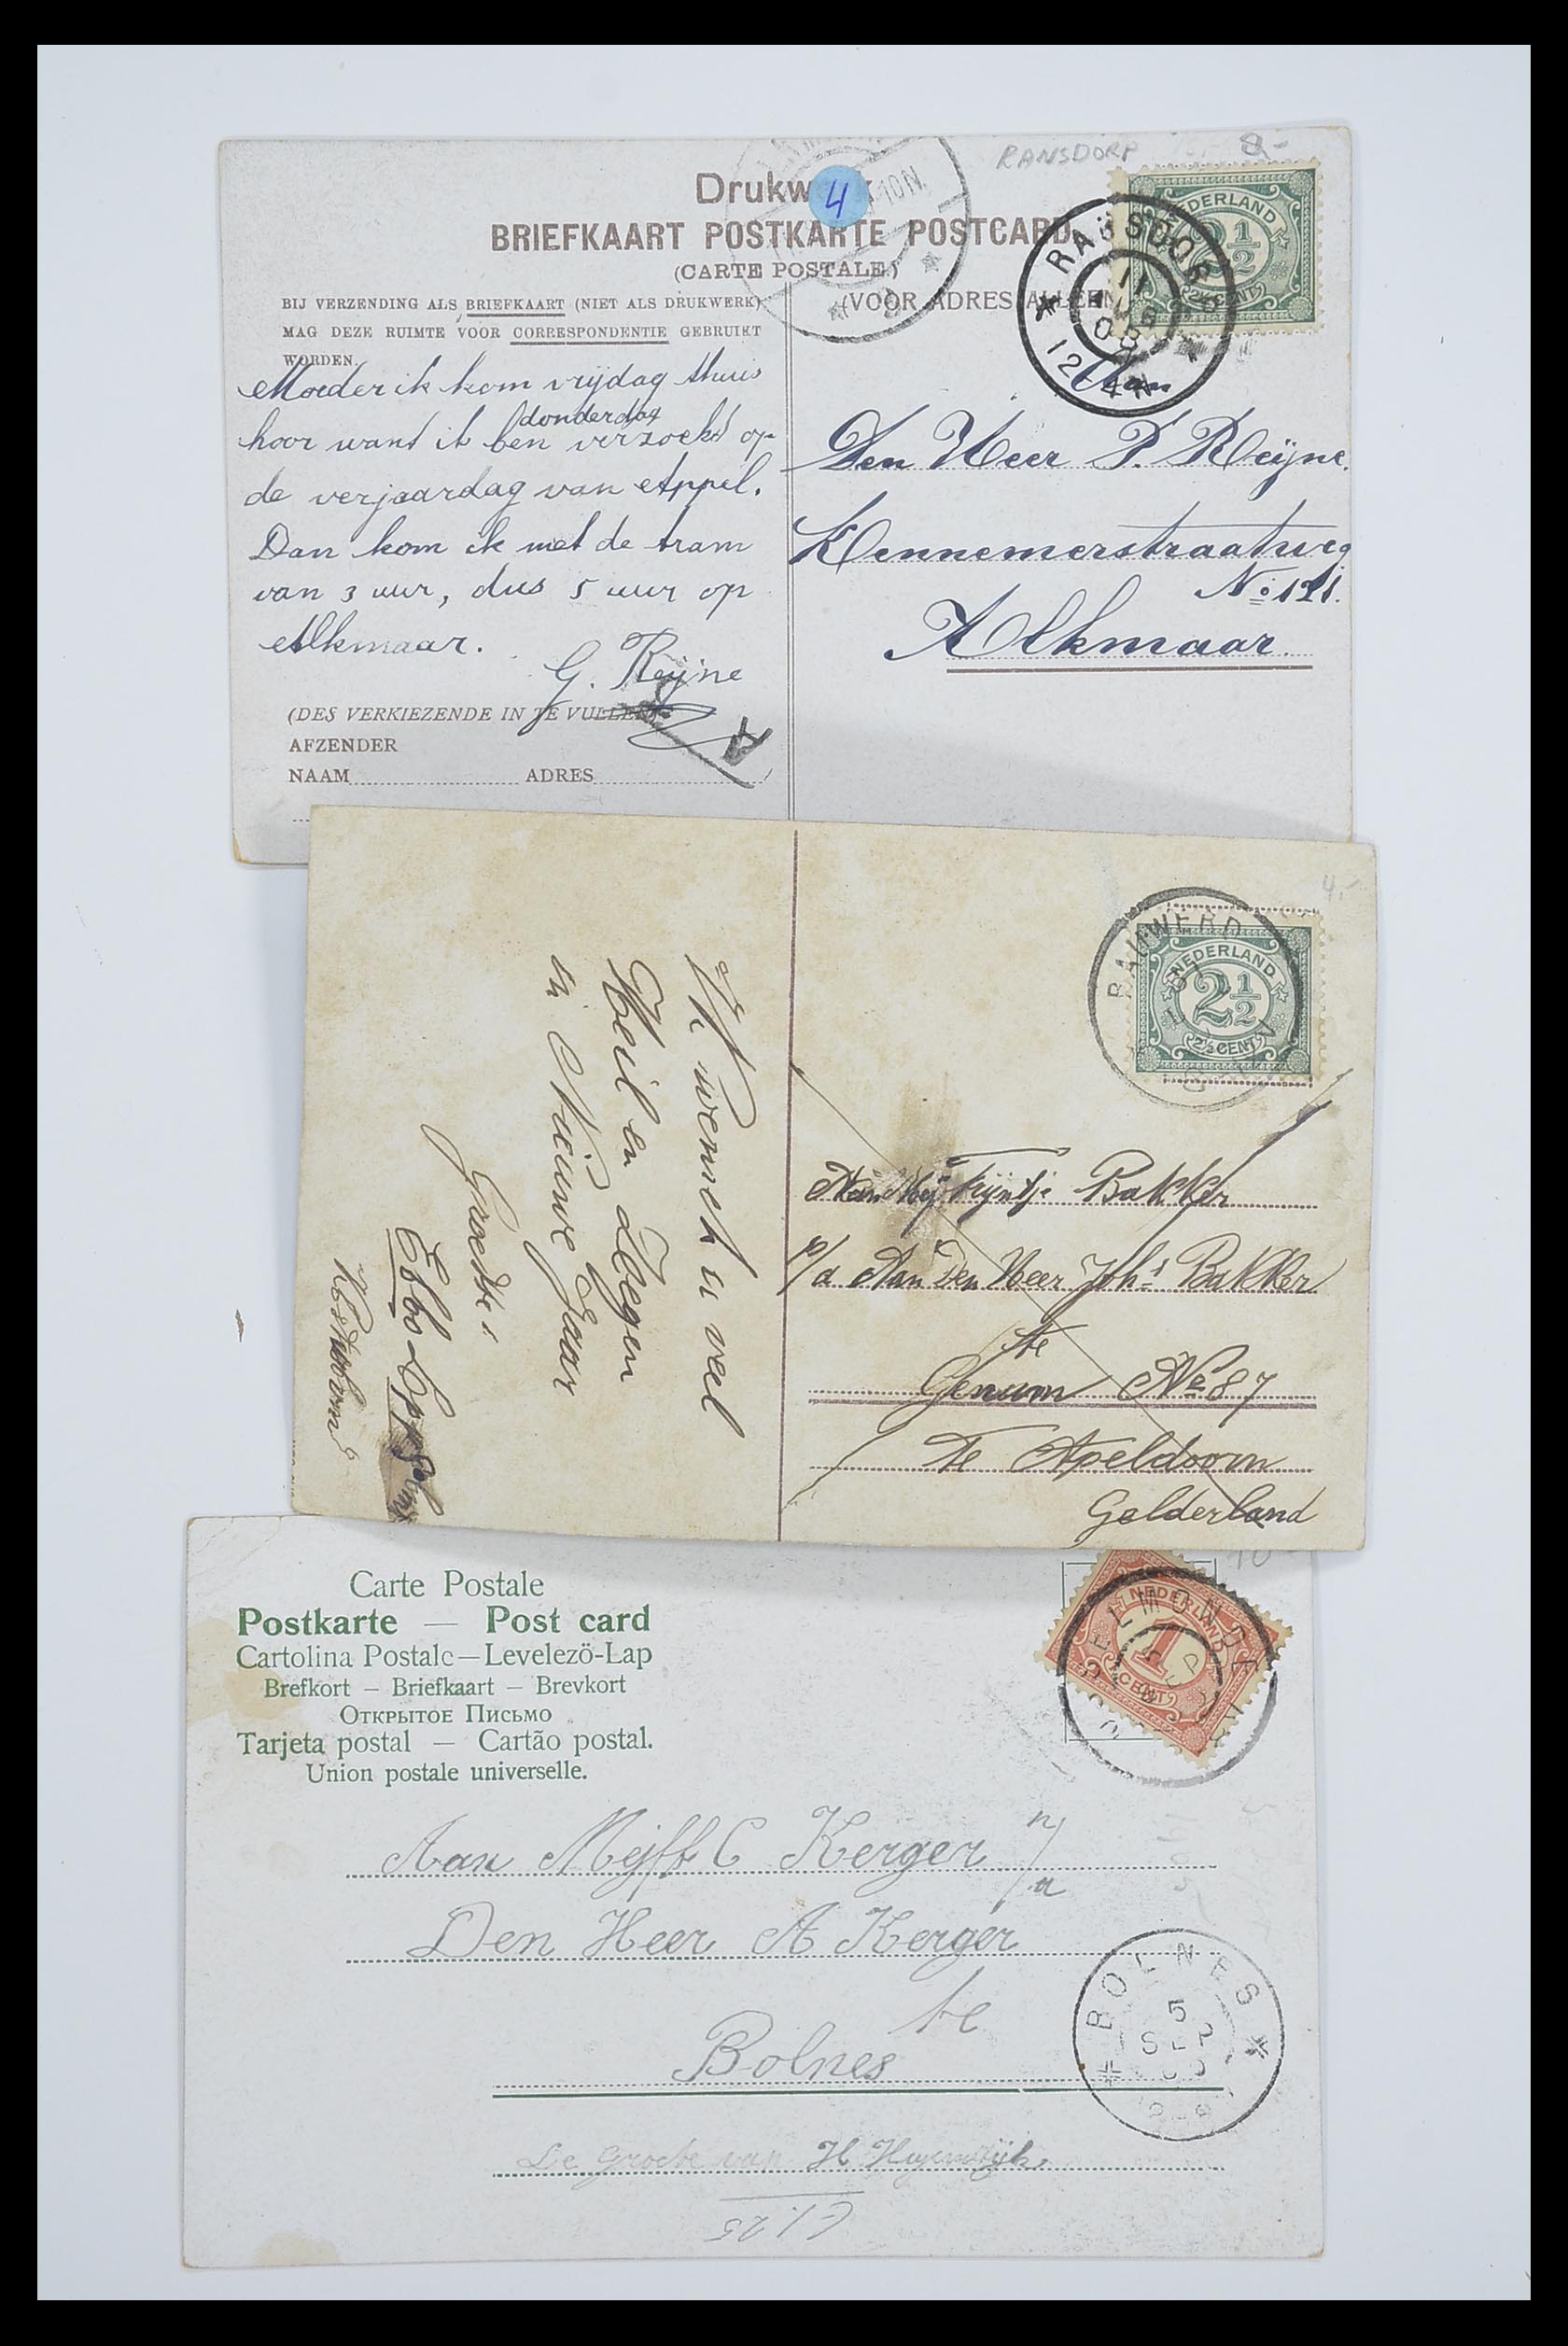 RANSDORP 8,-
Drukw
4
10N.
BRIEFKAART POSTKARTE POSTCARD
(CARTE POSTALE)
BIJ VERZENDING ALS BRIEFKAART (NIET ALS DRUKWERK)
MAG DEZE RUIMTE VOOR CORRESPONDENTIE GEBRUIKT
WORDEN.
(VOOR ADRES ALLEEN
NEDERLAND
2½
2½ CENT
RANSDORP
11
08
12
Moeder ik kom vrijdag thuis
donderdag
hoor want ik ben verzocht op
de verjaardag van Appel.
Dan kom ik met de tram
van 3 uur, dus 5 uur op
Alkmaar.
G. Reijne
Aan
Den Heer P. Reijne.
Kennemerstraatweg
No 121.
Alkmaar.
(DES VERKIEZENDE IN TE VULLEN)
A
AFZENDER
NAAM ADRES
4,-
RAUWERD
NEDERLAND
2½
2½ CENT
Ik wensch u veel
Heil en Zegen
in Nieuwe Jaar
Groeten
Aan Mej Tijntje Bakker
p/a Aan Den Heer Johs Bakker
te
Genum No 87
Te Apeldoorn
Gelderland
10
Carte Postale
Postkarte — Post card
Cartolina Postale — Levelezö-Lap
Brefkort – Briefkaart – Brevkort
Открытое Письмо
Tarjeta postal — Cartão postal.
Union postale universelle.
NEDERLAND
1
CENT
Aan Mejff C Kerger n/a
Den Heer A Kerger
te
Bolnes
BOLNES
5
SEP
De Groete van H